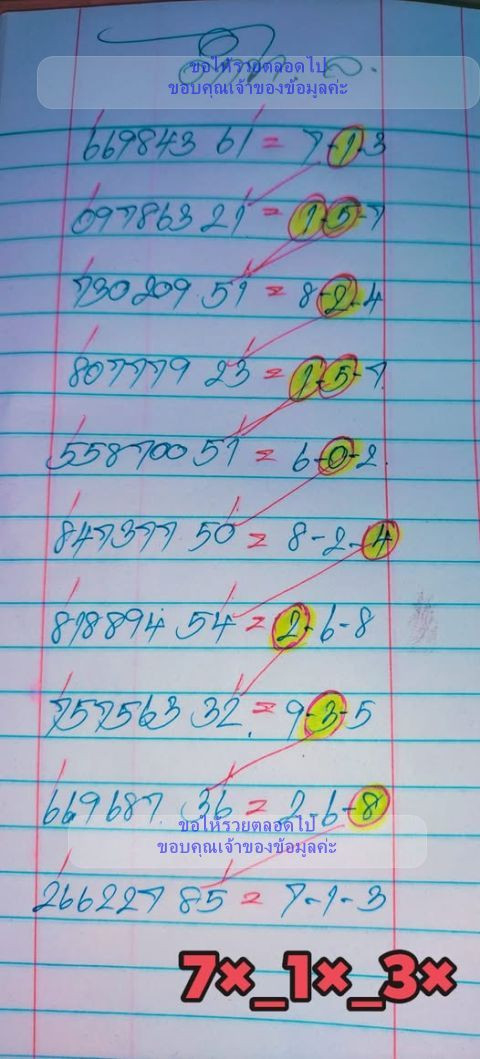 ขอให้รวยตลอดไป
ขอบคุณเจ้าของข้อมูลค่ะ
669843 61 = 7-1-3
097863 21 = 1-5-7
730209.51 = 8-2-4
807779 23 = 1-5-7
558700 51 = 6-0-2.
847377.50 = 8-2-4
818894 54 = 2-6-8
757563 32 = 9-3-5
669687. 36 = 2-6-8
ขอให้รวยตลอดไป
ขอบคุณเจ้าของข้อมูลค่ะ
266227 85 = 7-1-3
7×_1×_3×